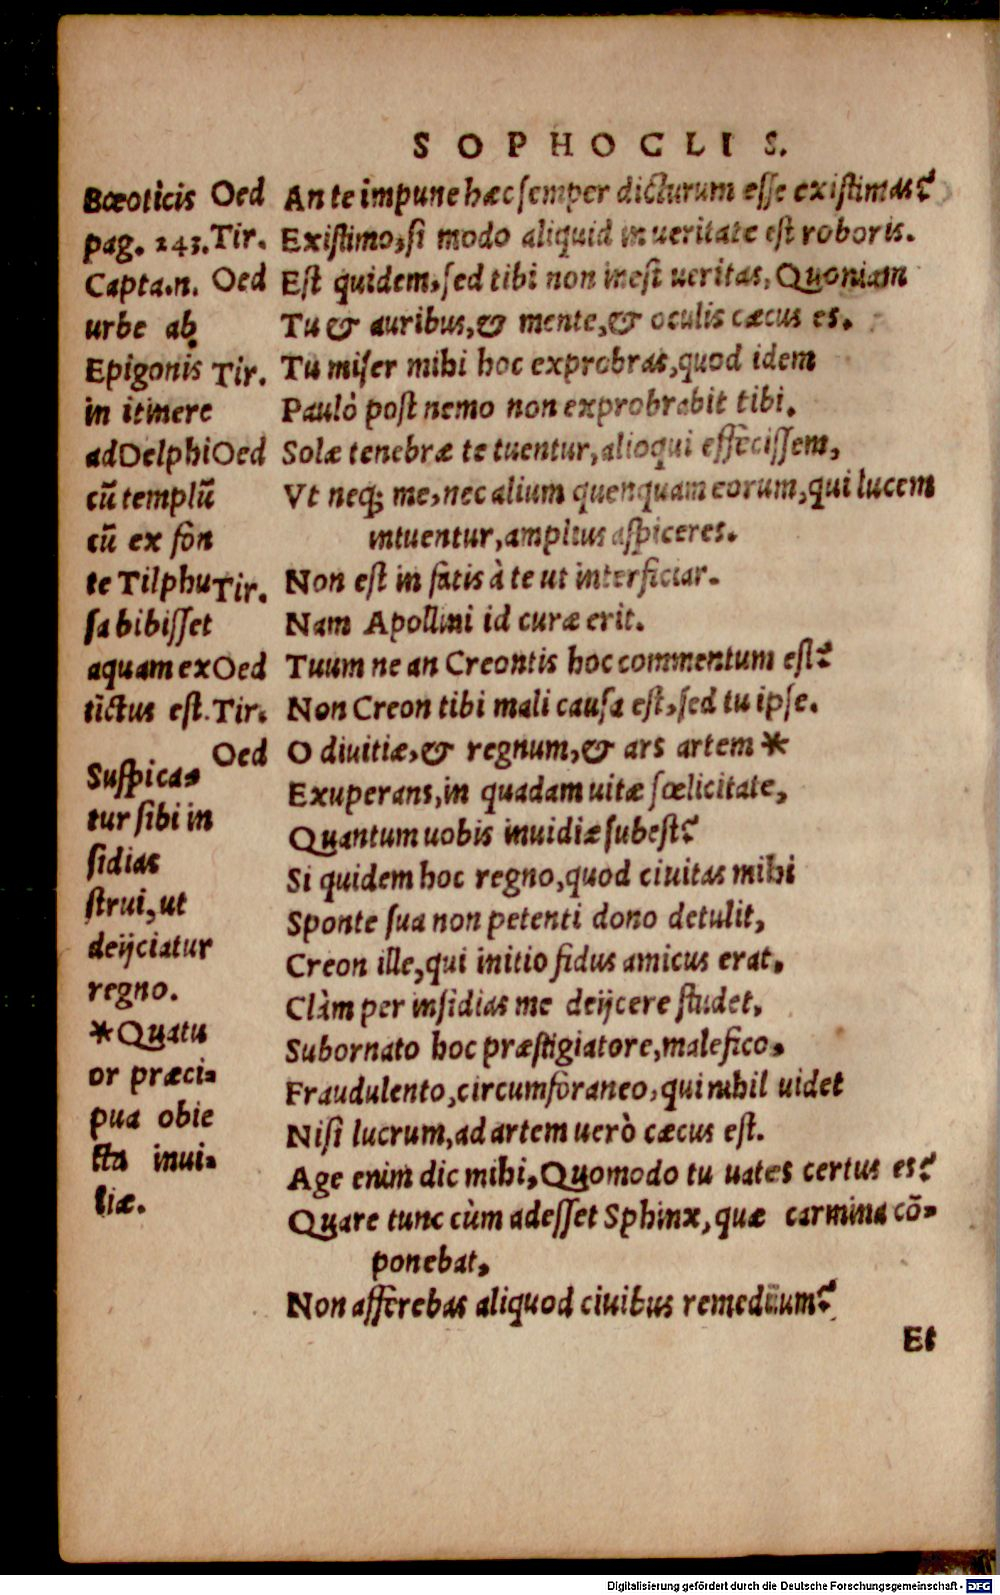 SOPHOCLIS.
Bœoticis Oed An te impune hæc semper dicturum esse existimas?
pag. 243. Tir. Existimo, si modo aliquid in ueritate est roboris.
Capta.n. Oed Est quidem, sed tibi non inest ueritas, Quoniam
urbe ab Tu & auribus, & mente, & oculis cæcus es.
Epigonis Tir. Tu miser mihi hoc exprobras, quod idem
in itinere Paulò post nemo non exprobrabit tibi.
ad Delphi Oed Solæ tenebræ te tuentur, alioqui effecissem,
cū templū Vt neq; me, nec alium quenquam eorum, qui lucem
cū ex fon intuentur, amplius aspiceres.
te Tilphu Tir. Non est in fatis à te ut interficiar.
sa bibisset Nam Apollini id curæ erit.
aquam ex Oed Tuum ne an Creontis hoc commentum est?
tictus est. Tir. Non Creon tibi mali causa est, sed tu ipse.
Oed O diuitiæ, & regnum, & ars artem *
Suspica= Exuperans, in quadam uitæ fœlicitate,
tur sibi in Quantum uobis inuidiæ subest?
sidias Si quidem hoc regno, quod ciuitas mihi
strui, ut Sponte sua non petenti dono detulit,
deijciatur Creon ille, qui initio fidus amicus erat,
regno. Clàm per insidias me deijcere studet,
* Quatu Subornato hoc præstigiatore, malefico,
or præci= Fraudulento, circumforaneo, qui nihil uidet
pua obie Nisi lucrum, ad artem uerò cæcus est.
cta inui= Age enim dic mihi, Quomodo tu uates certus es?
tiæ. Quare tunc cùm adesset Sphinx, quæ carmina cō=
ponebat,
Non afferebas aliquod ciuibus remedium?
Et
Digitalisierung gefördert durch die Deutsche Forschungsgemeinschaft - DFG